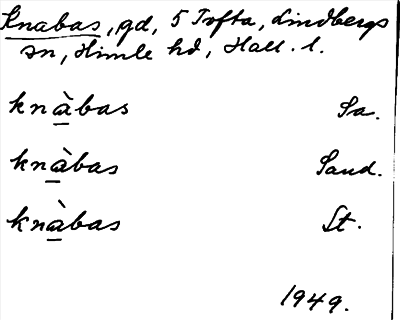 Knabas, gd, 5 Tofta, Lindbergs
sn, Himle hd, Hall. l.
knàbas Sa.
knàbas Sand.
knàbas St.
1949.